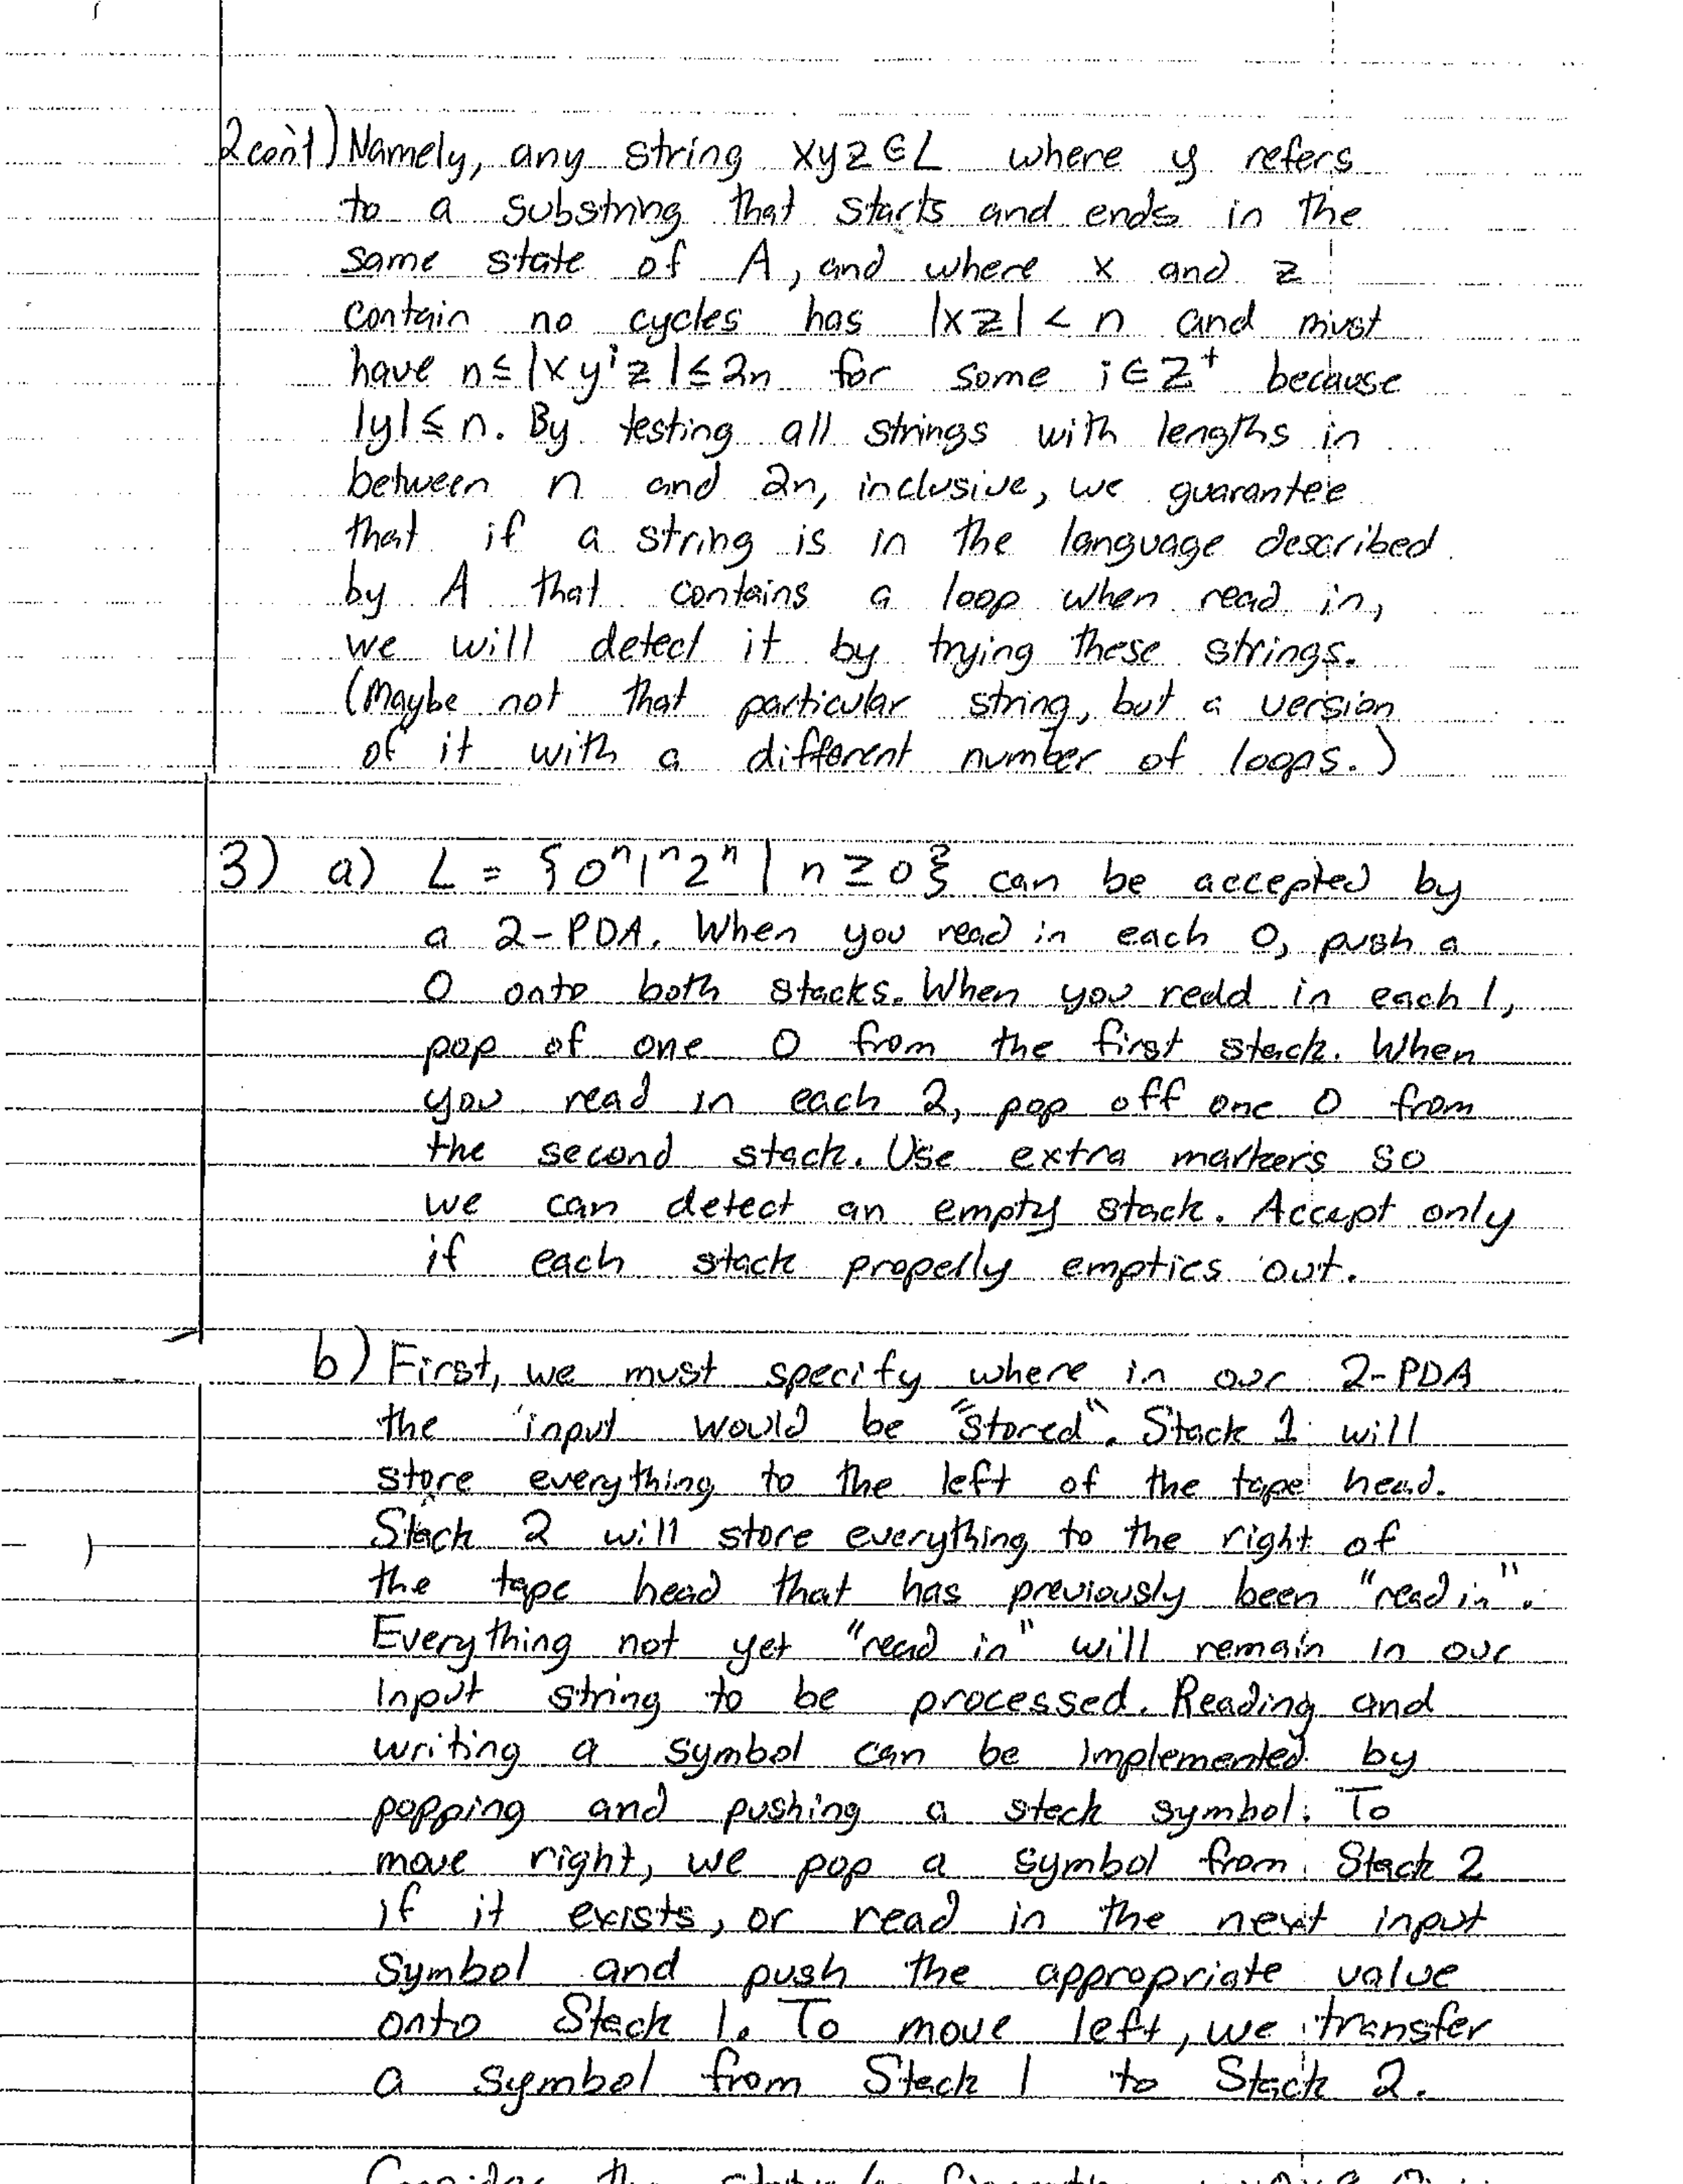 2con't) Namely, any string xyz∈L where y refers
to a substring that starts and ends in the
same state of A, and where x and z
contain no cycles has |xz| < n and must
have n≤|xyⁱz|≤2n for some i∈Z⁺ because
|y|≤n. By testing all strings with lengths in
between n and 2n, inclusive, we guarantee
that if a string is in the language described
by A that contains a loop when read in,
we will detect it by trying these strings.
(Maybe not that particular string, but a version
of it with a different number of loops.)
3) a) L = {0ⁿ1ⁿ2ⁿ | n ≥ 0} can be accepted by
a 2-PDA. When you read in each 0, push a
0 onto both stacks. When you read in each 1,
pop of one 0 from the first stack. When
you read in each 2, pop off one 0 from
the second stack. Use extra markers so
we can detect an empty stack. Accept only
if each stack properly empties out.
b) First, we must specify where in our 2-PDA
the input would be "stored". Stack 1 will
store everything to the left of the tape head.
Stack 2 will store everything to the right of
the tape head that has previously been "read in".
Everything not yet "read in" will remain in our
input string to be processed. Reading and
writing a symbol can be implemented by
popping and pushing a stack symbol. To
move right, we pop a symbol from Stack 2
if it exists, or read in the next input
symbol and push the appropriate value
onto Stack 1. To move left, we transfer
a symbol from Stack 1 to Stack 2.